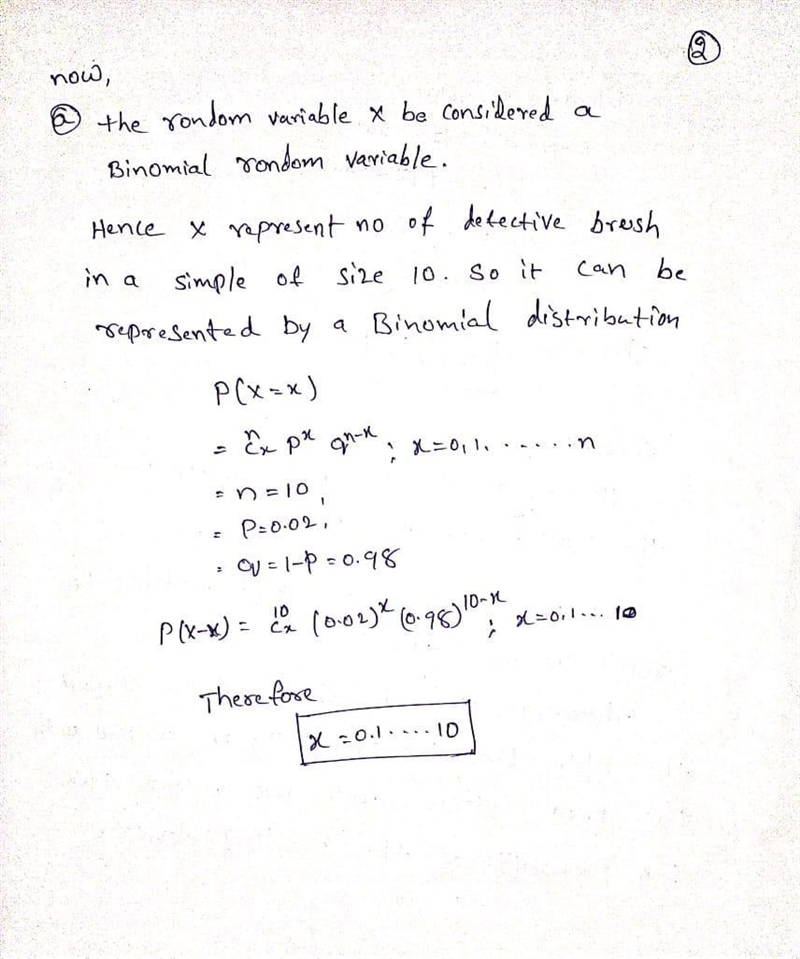 ②
now,
ⓐ the rondom variable x be considered a
Binomial rondom variable.
Hence x represent no of defective brush
in a simple of size 10. So it can be
represented by a Binomial distribution
P(x=x)
= ⁿCₓ pˣ qⁿ⁻ˣ ; x=0,1, ......n
= n=10,
= P=0.02,
= q=1-p=0.98
P(x-x) = ¹⁰Cₓ (0.02)ˣ (0.98)¹⁰⁻ˣ ; x=0,1... 10
Therefore
x =0.1.....10